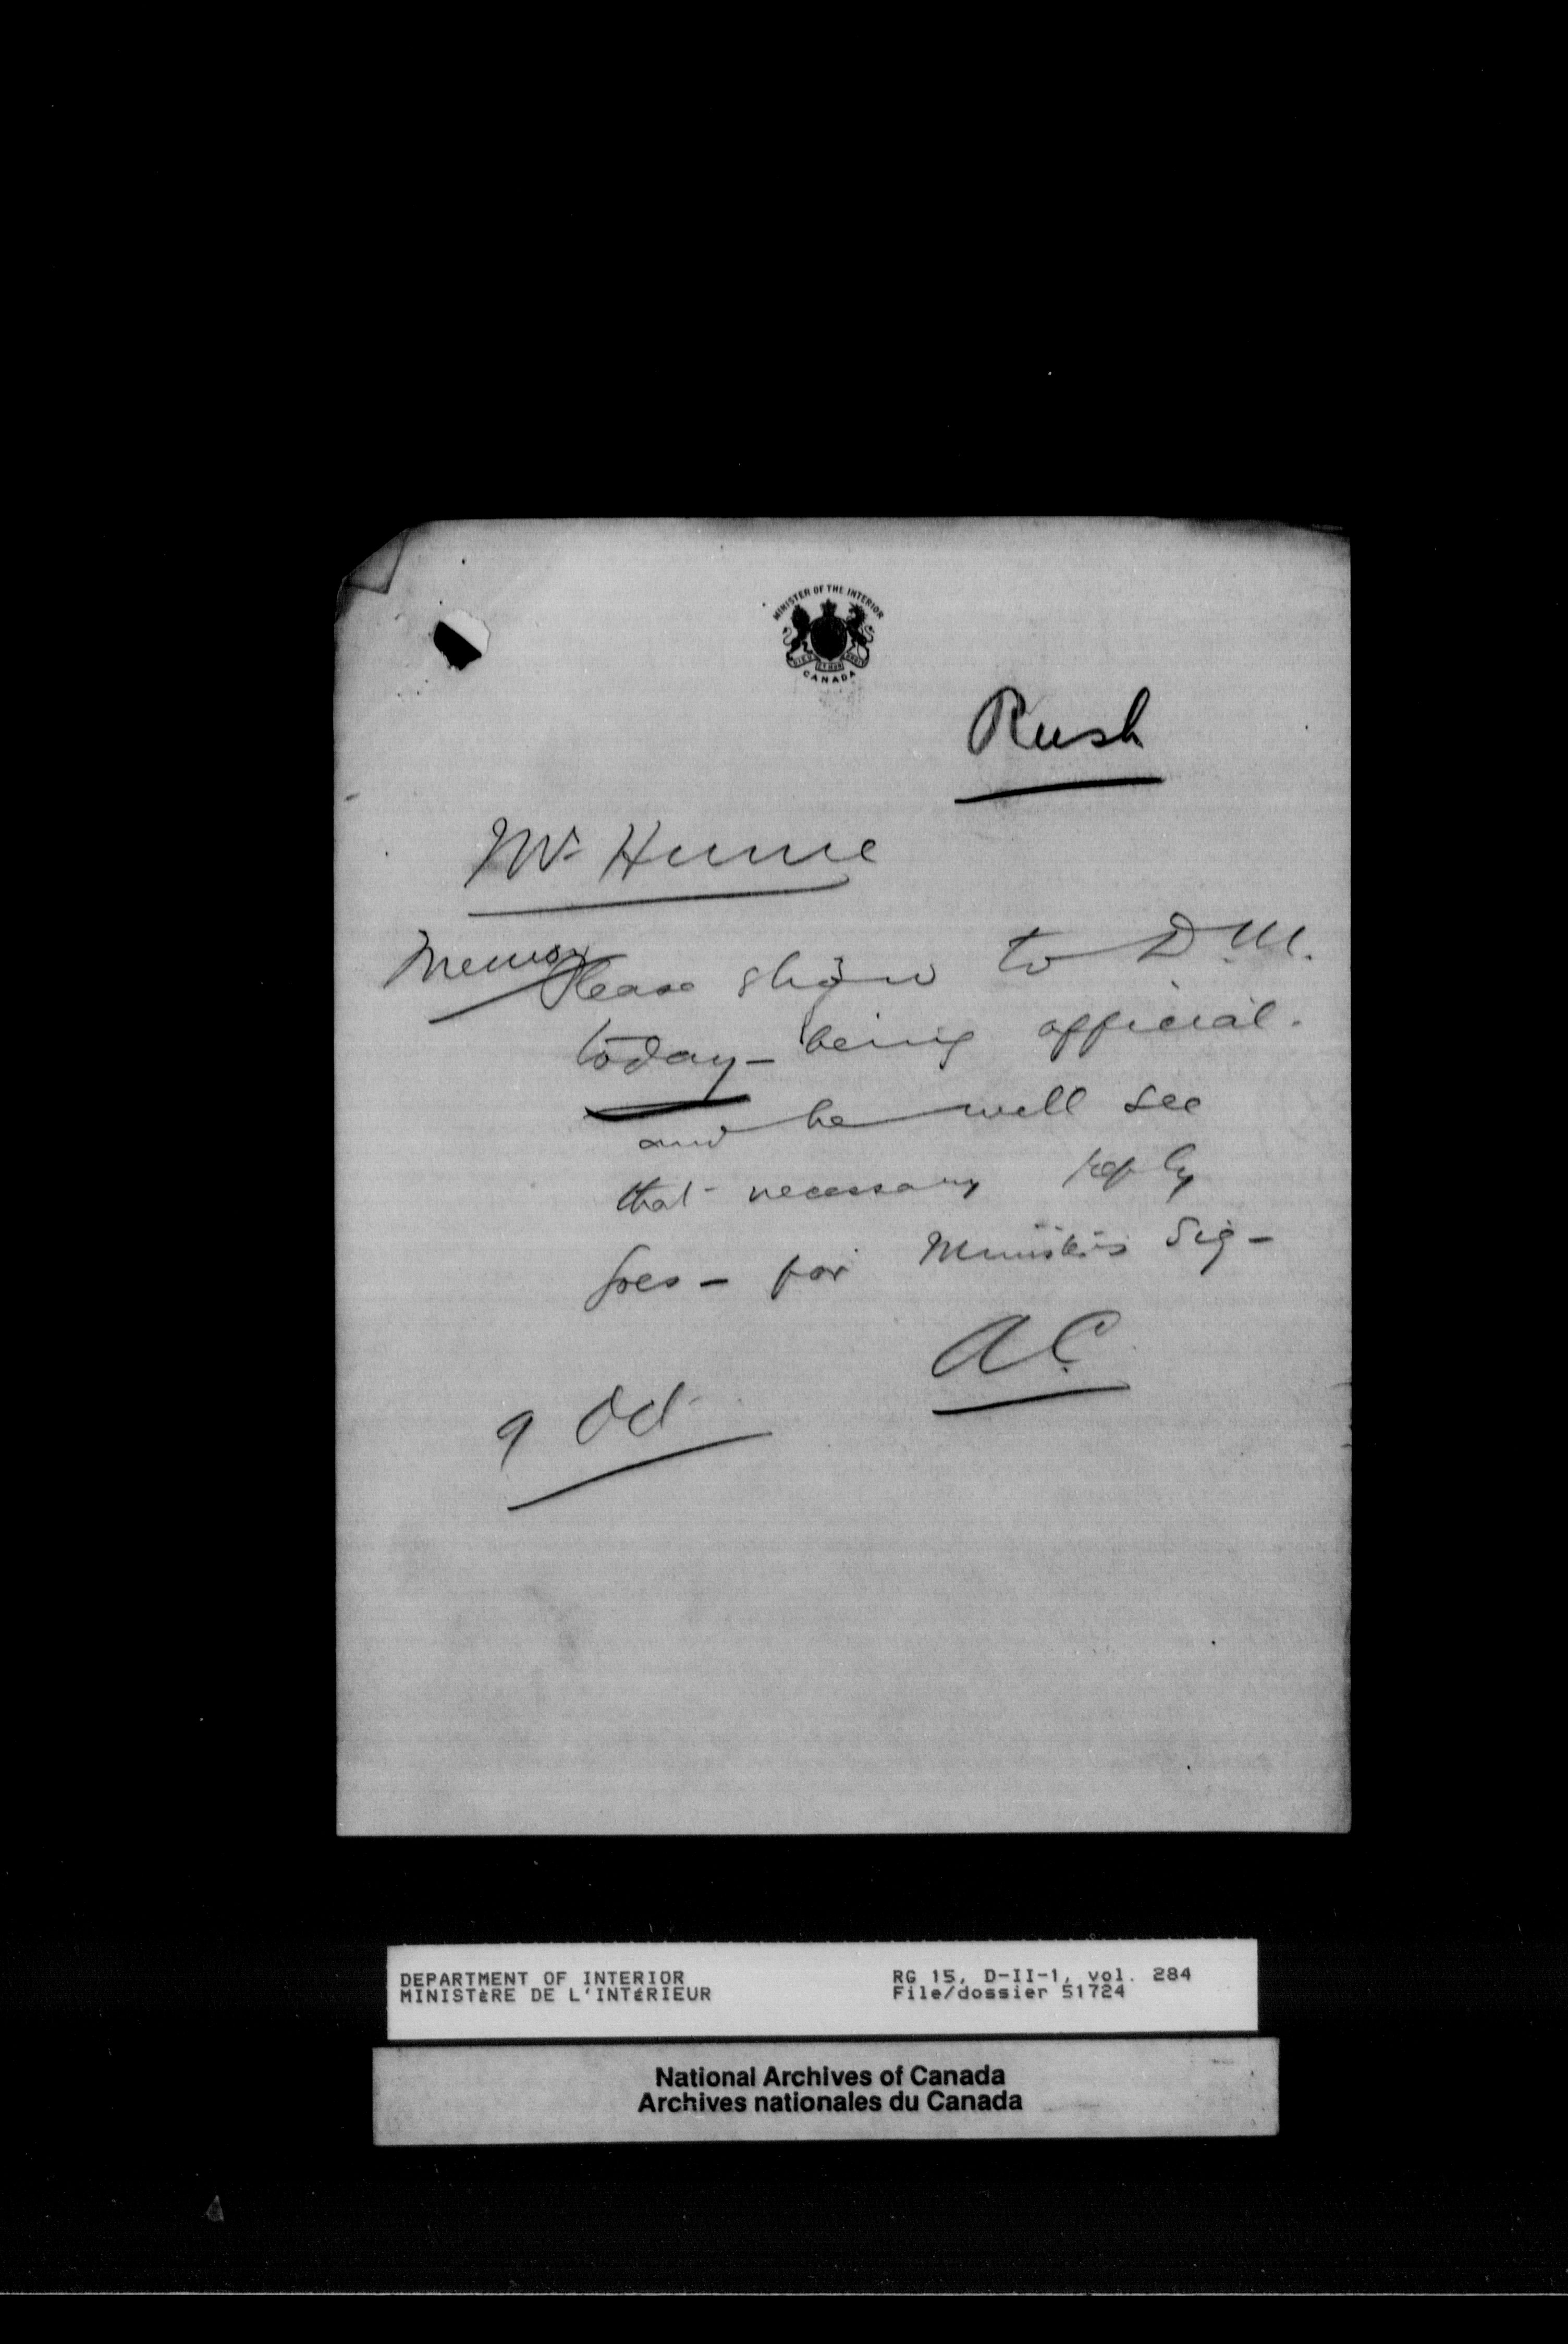 MINISTER OF THE INTERIOR
CANADA
Rush
Mr. Hume
Memo
Please show to D.M.
today - being official.
and he will see
that necessary reply
goes - for Minister's Sig -
A.C.
9 Oct
DEPARTMENT OF INTERIOR
MINISTÈRE DE L'INTÉRIEUR
RG 15, D-II-1, vol. 284
File/dossier 51724
National Archives of Canada
Archives nationales du Canada